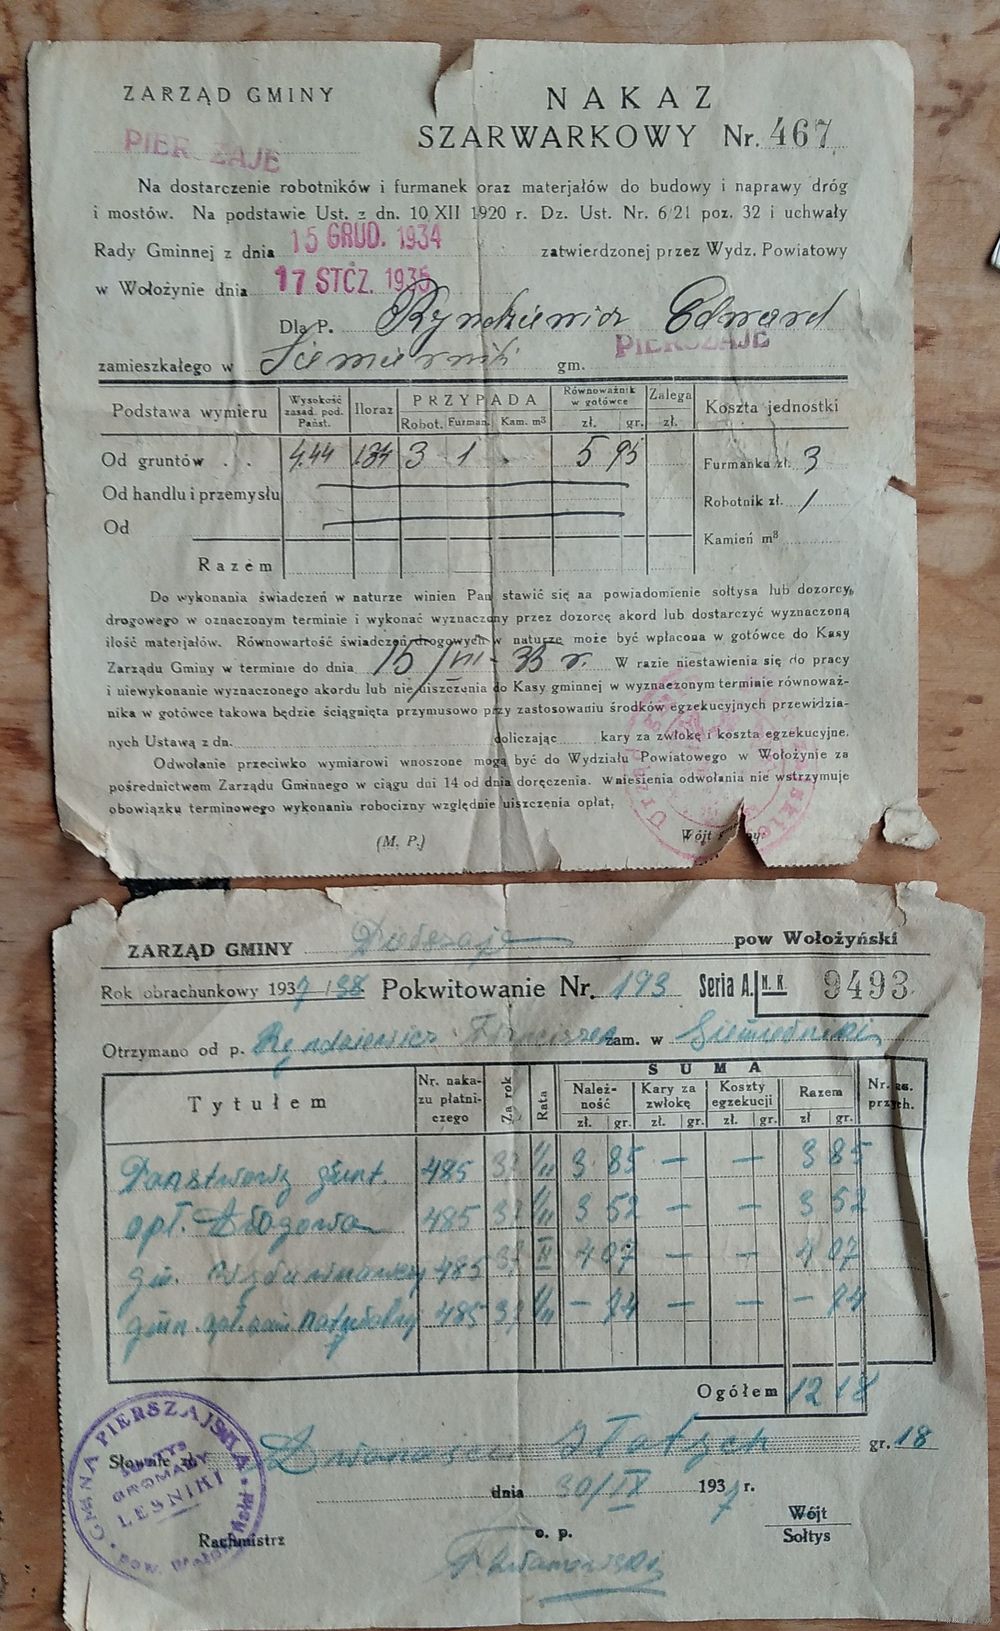 ZARZĄD GMINY
PIERSZAJE
NAKAZ
SZARWARKOWY Nr. 467
Na dostarczenie robotników i furmanek oraz materjałów do budowy i naprawy dróg
i mostów. Na podstawie Ust. z dn. 10 XII 1920 r. Dz. Ust. Nr. 6/21 poz. 32 i uchwały
Rady Gminnej z dnia 15 GRUD. 1934 zatwierdzonej przez Wydz. Powiatowy
w Wołożynie dnia 17 STCZ. 1935
Dla P. Edward
zamieszkałego w gm. PIERSZAJE
Podstawa wymieru Wysokość zasad. pod. Państ. Iloraz PRZYPADA Robot. Furman. Kam. m³ Równoważnik w gotówce zł. gr. Zalega zł. Koszta jednostki
Od gruntów . . 4.44 1.34 3 1 5 95 Furmanka zł. 3
Od handlu i przemysłu Robotnik zł. 1
Od Kamień m³
Razem
Do wykonania świadczeń w naturze winien Pan stawić się na powiadomienie sołtysa lub dozorcy
drogowego w oznaczonym terminie i wykonać wyznaczony przez dozorcę akord lub dostarczyć wyznaczoną
ilość materjałów. Równowartość świadczeń drogowych w naturze może być wpłacona w gotówce do Kasy
Zarządu Gminy w terminie do dnia 15/VII-35 r. W razie niestawienia się do pracy
i niewykonanie wyznaczonego akordu lub nie uiszczenia do Kasy gminnej w wyznaczonym terminie równoważ-
nika w gotówce takowa będzie ściągnięta przymusowo przy zastosowaniu środków egzekucyjnych przewidzia-
nych Ustawą z dn. doliczając kary za zwłokę i koszta egzekucyjne.
Odwołanie przeciwko wymiarowi wnoszone mogą być do Wydziału Powiatowego w Wołożynie za
pośrednictwem Zarządu Gminnego w ciągu dni 14 od dnia doręczenia. Wniesienia odwołania nie wstrzymuje
obowiązku terminowego wykonania robocizny względnie uiszczenia opłat.
(M. P.) Wójt
ZARZĄD GMINY pow Wołożyński
Rok obrachunkowy 1937/38 Pokwitowanie Nr. 193 Seria A. N. K. 9493
Otrzymano od p. zam. w
Tytułem Nr. naka-zu płatni-czego Za rok Rata SUMA Należ-ność zł. gr. Kary za zwłokę zł. gr. Koszty egzekucji zł. gr. Razem zł gr. Nr.
Państwowy grunt. 485 37 3 85 — — 3 85
opł. 485 37 3 52 — — 3 52
gm. 485 37 II 4 07 — — 4 07
gmin 485 37 — 74 — — — 74
Ogółem 12 18
Słownie zł. Dwanaście złotych gr. 18
dnia 30/IX 1937 r.
Rachmistrz o. p. Wójt
Sołtys
GMINA PIERSZAJSKA
SOŁTYS
GROMADY
LEŚNIKI